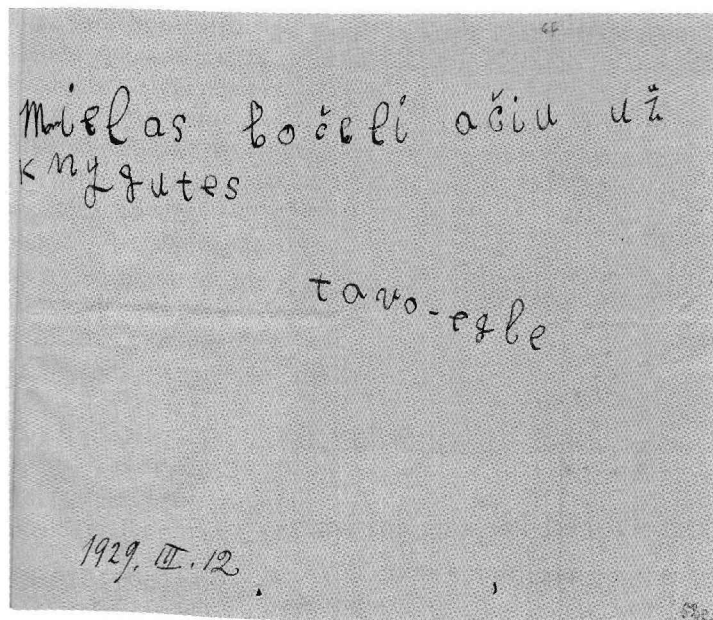 Mielas bočeli ačiu už
knygutes
tavo-egle
1929. III. 12